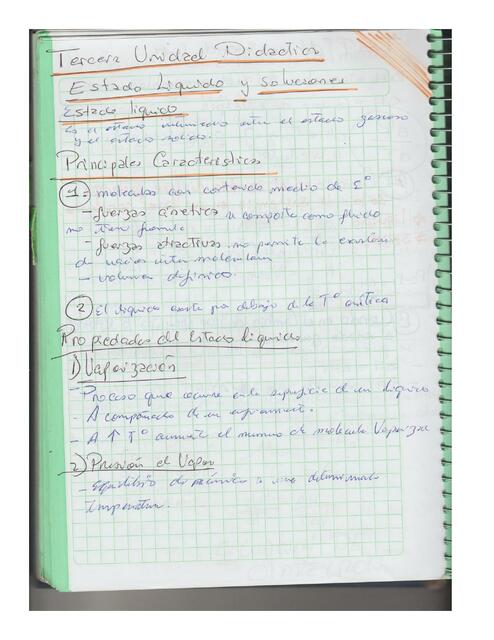 Tercera Unidad Didactica
Estado Liquido y soluciones
Estado liquido
Es el estado intermedio entre el estado gaseoso
y el estado solido.
Principales Caracteristicas
1 = moleculas con contenido medio de Eº
- fuerzas cinetica se comporta como fluido
no tien forma.
- fuerzas atractivas no permite la
de vacios intermolecular
- volumen definido.
2 El liquido existe por debajo de la Tº critica
Propiedades del Estado liquido
1) Vaporización
- Proceso que ocurre en la superficie de un liquido
- Acompañado de un
- A ↑ Tº aumenta el numero de molecula
2) Presión de Vapor
- Equilibrio dinamico a una determinada
temperatura.